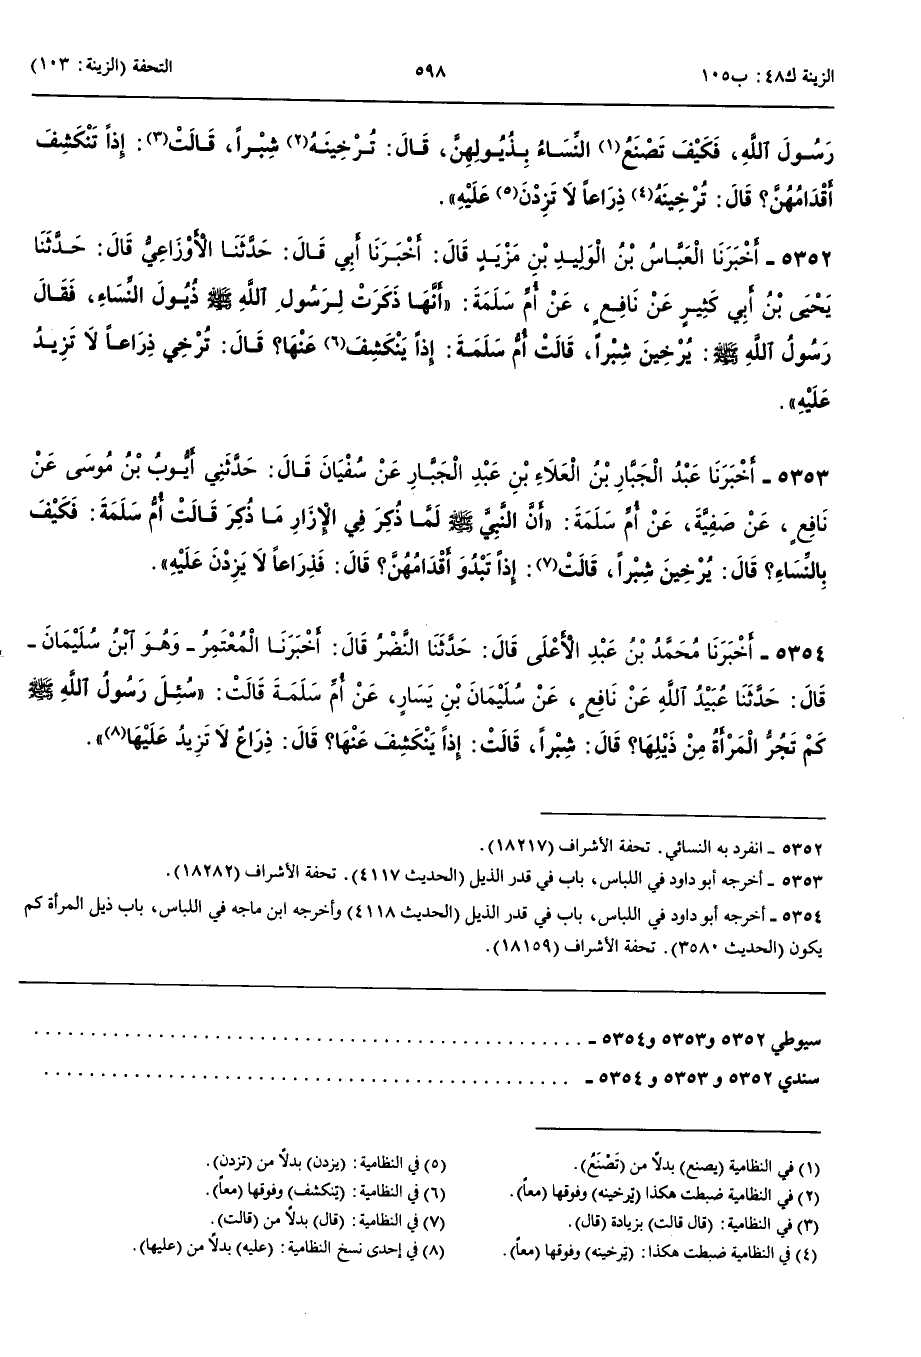 الزينة ك٤٨: ب١٠٥
٥٩٨
التحفة (الزينة: ١٠٣)
رَسُولَ ٱللَّهِ، فَكَيْفَ تَصْنَعُ(١) النِّسَاءُ بِذُيُولِهِنَّ، قَالَ: تُرْخِينَهُ(٢) شِبْراً، قَالَتْ(٣): إِذاً تَنْكَشِفَ
أَقْدَامُهُنَّ؟ قَالَ: تُرْخِينَهُ(٤) ذِرَاعاً لَا تَزِدْنَ(٥) عَلَيْهِ».
٥٣٥٢ ـ أَخْبَرَنَا الْعَبَّاسُ بْنُ الْوَلِيدِ بْنِ مَزْيَدٍ قَالَ: أَخْبَرَنَا أَبِي قَالَ: حَدَّثَنَا الْأَوْزَاعِيُّ قَالَ: حَدَّثَنَا
يَحْيَى بْنُ أَبِي كَثِيرٍ عَنْ نَافِعٍ، عَنْ أُمِّ سَلَمَةَ: «أَنَّهَا ذَكَرَتْ لِرَسُولِ ٱللَّهِ ﷺ ذُيُولَ النِّسَاءِ، فَقَالَ
رَسُولُ ٱللَّهِ ﷺ: يُرْخِينَ شِبْراً، قَالَتْ أُمُّ سَلَمَةَ: إِذاً يَنْكَشِفَ(٦) عَنْهَا؟ قَالَ: تُرْخِي ذِرَاعاً لَا تَزِيدُ
عَلَيْهِ».
٥٣٥٣ ـ أَخْبَرَنَا عَبْدُ الْجَبَّارِ بْنُ الْعَلَاءِ بْنِ عَبْدِ الْجَبَّارِ عَنْ سُفْيَانَ قَالَ: حَدَّثَنِي أَيُّوبُ بْنُ مُوسَى عَنْ
نَافِعٍ، عَنْ صَفِيَّةَ، عَنْ أُمِّ سَلَمَةَ: «أَنَّ النَّبِيَّ ﷺ لَمَّا ذُكِرَ فِي الْإِزَارِ مَا ذُكِرَ قَالَتْ أُمُّ سَلَمَةَ: فَكَيْفَ
بِالنِّسَاءِ؟ قَالَ: يُرْخِينَ شِبْراً، قَالَتْ(٧): إِذاً تَبْدُوَ أَقْدَامُهُنَّ؟ قَالَ: فَذِرَاعاً لَا يَزِدْنَ عَلَيْهِ».
٥٣٥٤ ـ أَخْبَرَنَا مُحَمَّدُ بْنُ عَبْدِ الْأَعْلَى قَالَ: حَدَّثَنَا النَّضْرُ قَالَ: أَخْبَرَنَا الْمُعْتَمِرُ ـ وَهُوَ ٱبْنُ سُلَيْمَانَ ـ
قَالَ: حَدَّثَنَا عُبَيْدُ ٱللَّهِ عَنْ نَافِعٍ، عَنْ سُلَيْمَانَ بْنِ يَسَارٍ، عَنْ أُمِّ سَلَمَةَ قَالَتْ: «سُئِلَ رَسُولُ ٱللَّهِ ﷺ
كَمْ تَجُرُّ الْمَرْأَةُ مِنْ ذَيْلِهَا؟ قَالَ: شِبْراً، قَالَتْ: إِذاً يَنْكَشِفَ عَنْهَا؟ قَالَ: ذِرَاعٌ لَا تَزِيدُ عَلَيْهَا(٨)».
٥٣٥٢ ـ انفرد به النسائي. تحفة الأشراف (١٨٢١٧).
٥٣٥٣ ـ أخرجه أبو داود في اللباس، باب في قدر الذيل (الحديث ٤١١٧). تحفة الأشراف (١٨٢٨٢).
٥٣٥٤ ـ أخرجه أبو داود في اللباس، باب في قدر الذيل (الحديث ٤١١٨) وأخرجه ابن ماجه في اللباس، باب ذيل المرأة كم
يكون (الحديث ٣٥٨٠). تحفة الأشراف (١٨١٥٩).
سيوطي ٥٣٥٢ و٥٣٥٣ و٥٣٥٤ ـ
سندي ٥٣٥٢ و ٥٣٥٣ و ٥٣٥٤ ـ
(١) في النظامية (يصنع) بدلاً من (تَصْنَعُ).
(٢) في النظامية ضبطت هكذا (يُرخينه) وفوقها (معاً).
(٣) في النظامية: (قال قالت) بزيادة (قال).
(٤) في النظامية ضبطت هكذا: (يُرخينه) وفوقها (معاً).
(٥) في النظامية: (يزدن) بدلاً من (تزدن).
(٦) في النظامية: (يتنكشف) وفوقها (معاً).
(٧) في النظامية: (قال) بدلاً من (قالت).
(٨) في إحدى نسخ النظامية: (عليه) بدلاً من (عليها).